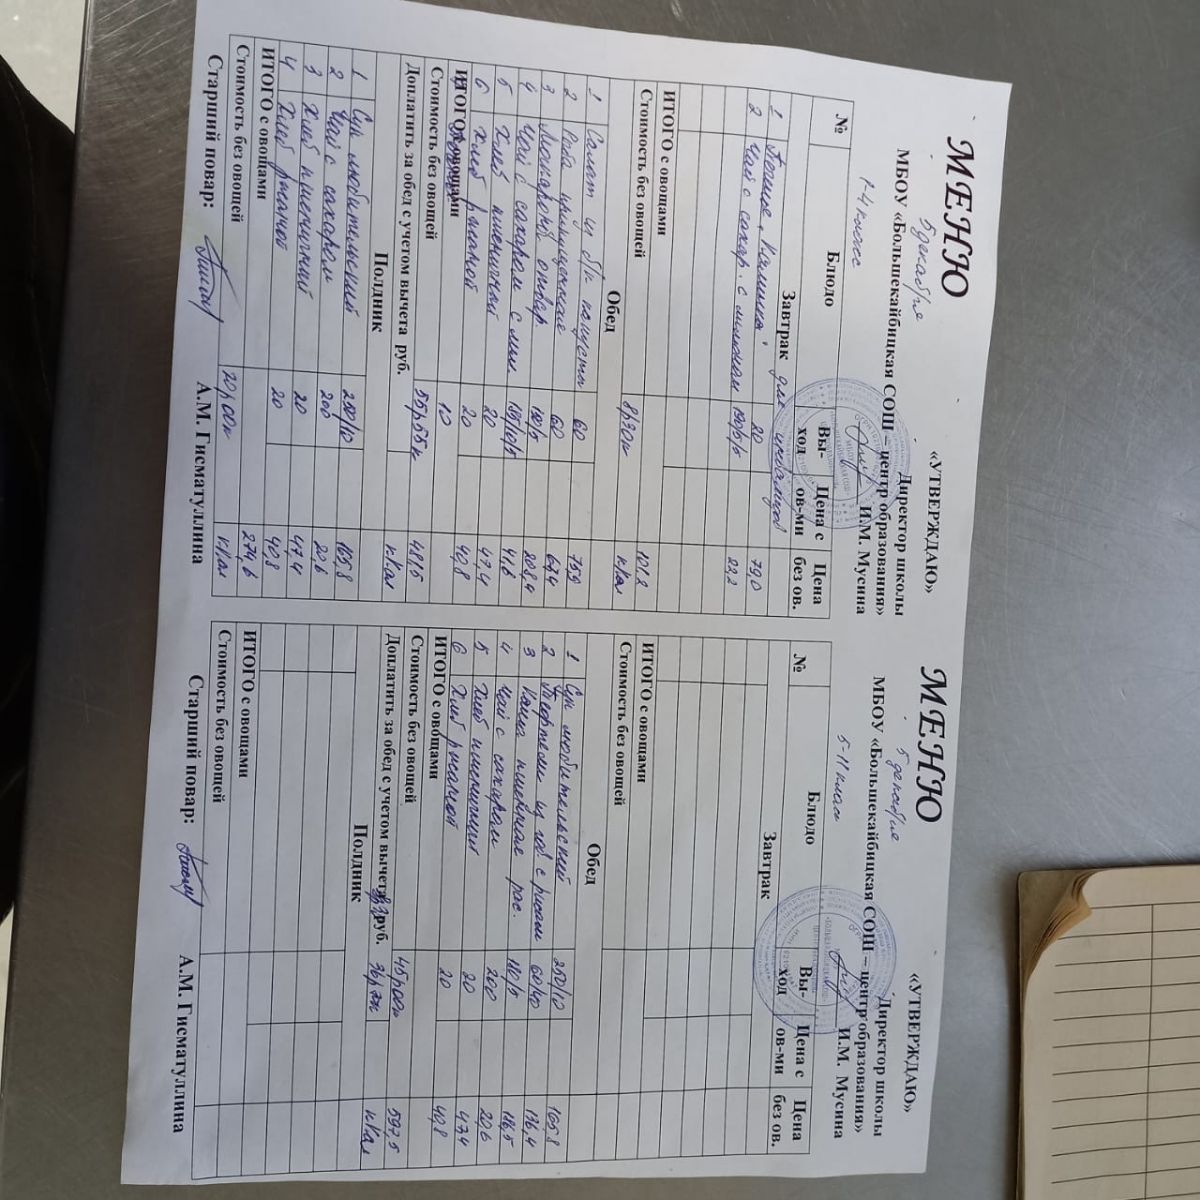 «УТВЕРЖДАЮ»
Директор школы
МБОУ «Большекайбицкая СОШ – центр образования»
И.М. Мусина
МЕНЮ
5 декабря
1-4 класс
№ Блюдо Вы-ход Цена с ов-ми Цена без ов.
Завтрак для
1 20 79,0
2 Чай с сахар. с лимоном 190/5/5 22,2
ИТОГО с овощами 101.2
Стоимость без овощей 8р30к к/кал
Обед
1 Салат из б/к капусты 60 75,9
2 Рыба 60 67,4
3 Макароны отвар. 150/5 208,4
4 Чай с сахаром с лим. 180/10/5 41,6
5 Хлеб пшеничный 20 47,4
6 Хлеб ржаной 20 40,8
ИТОГО с овощами 10
Стоимость без овощей 55р55к 481,5
Доплатить за обед с учетом вычета руб. к/кал
Полдник
1 Суп любительский 250/10 165,8
2 Чай с сахаром 200 20,6
3 Хлеб пшеничный 20 47,4
4 Хлеб ржаной 20 40,8
ИТОГО с овощами 274,6
Стоимость без овощей 20р00к к/кал
Старший повар: А.М. Гисматуллина
«УТВЕРЖДАЮ»
Директор школы
МБОУ «Большекайбицкая СОШ – центр образования»
И.М. Мусина
МЕНЮ
5 декабря
5-11 класс
№ Блюдо Вы-ход Цена с ов-ми Цена без ов.
Завтрак
ИТОГО с овощами
Стоимость без овощей
Обед
1 Суп любительский 250/10 165.8
2 Тефтели из гов. с рисом 60/40 136,4
3 Каша пшенная рас. 180/5 186,5
4 Чай с сахаром 200 20,6
5 Хлеб пшеничный 20 47,4
6 Хлеб ржаной 20 40,8
ИТОГО с овощами
Стоимость без овощей 45р00к 597,5
Доплатить за обед с учетом вычета руб. к/кал
Полдник
ИТОГО с овощами
Стоимость без овощей
Старший повар: А.М. Гисматуллина